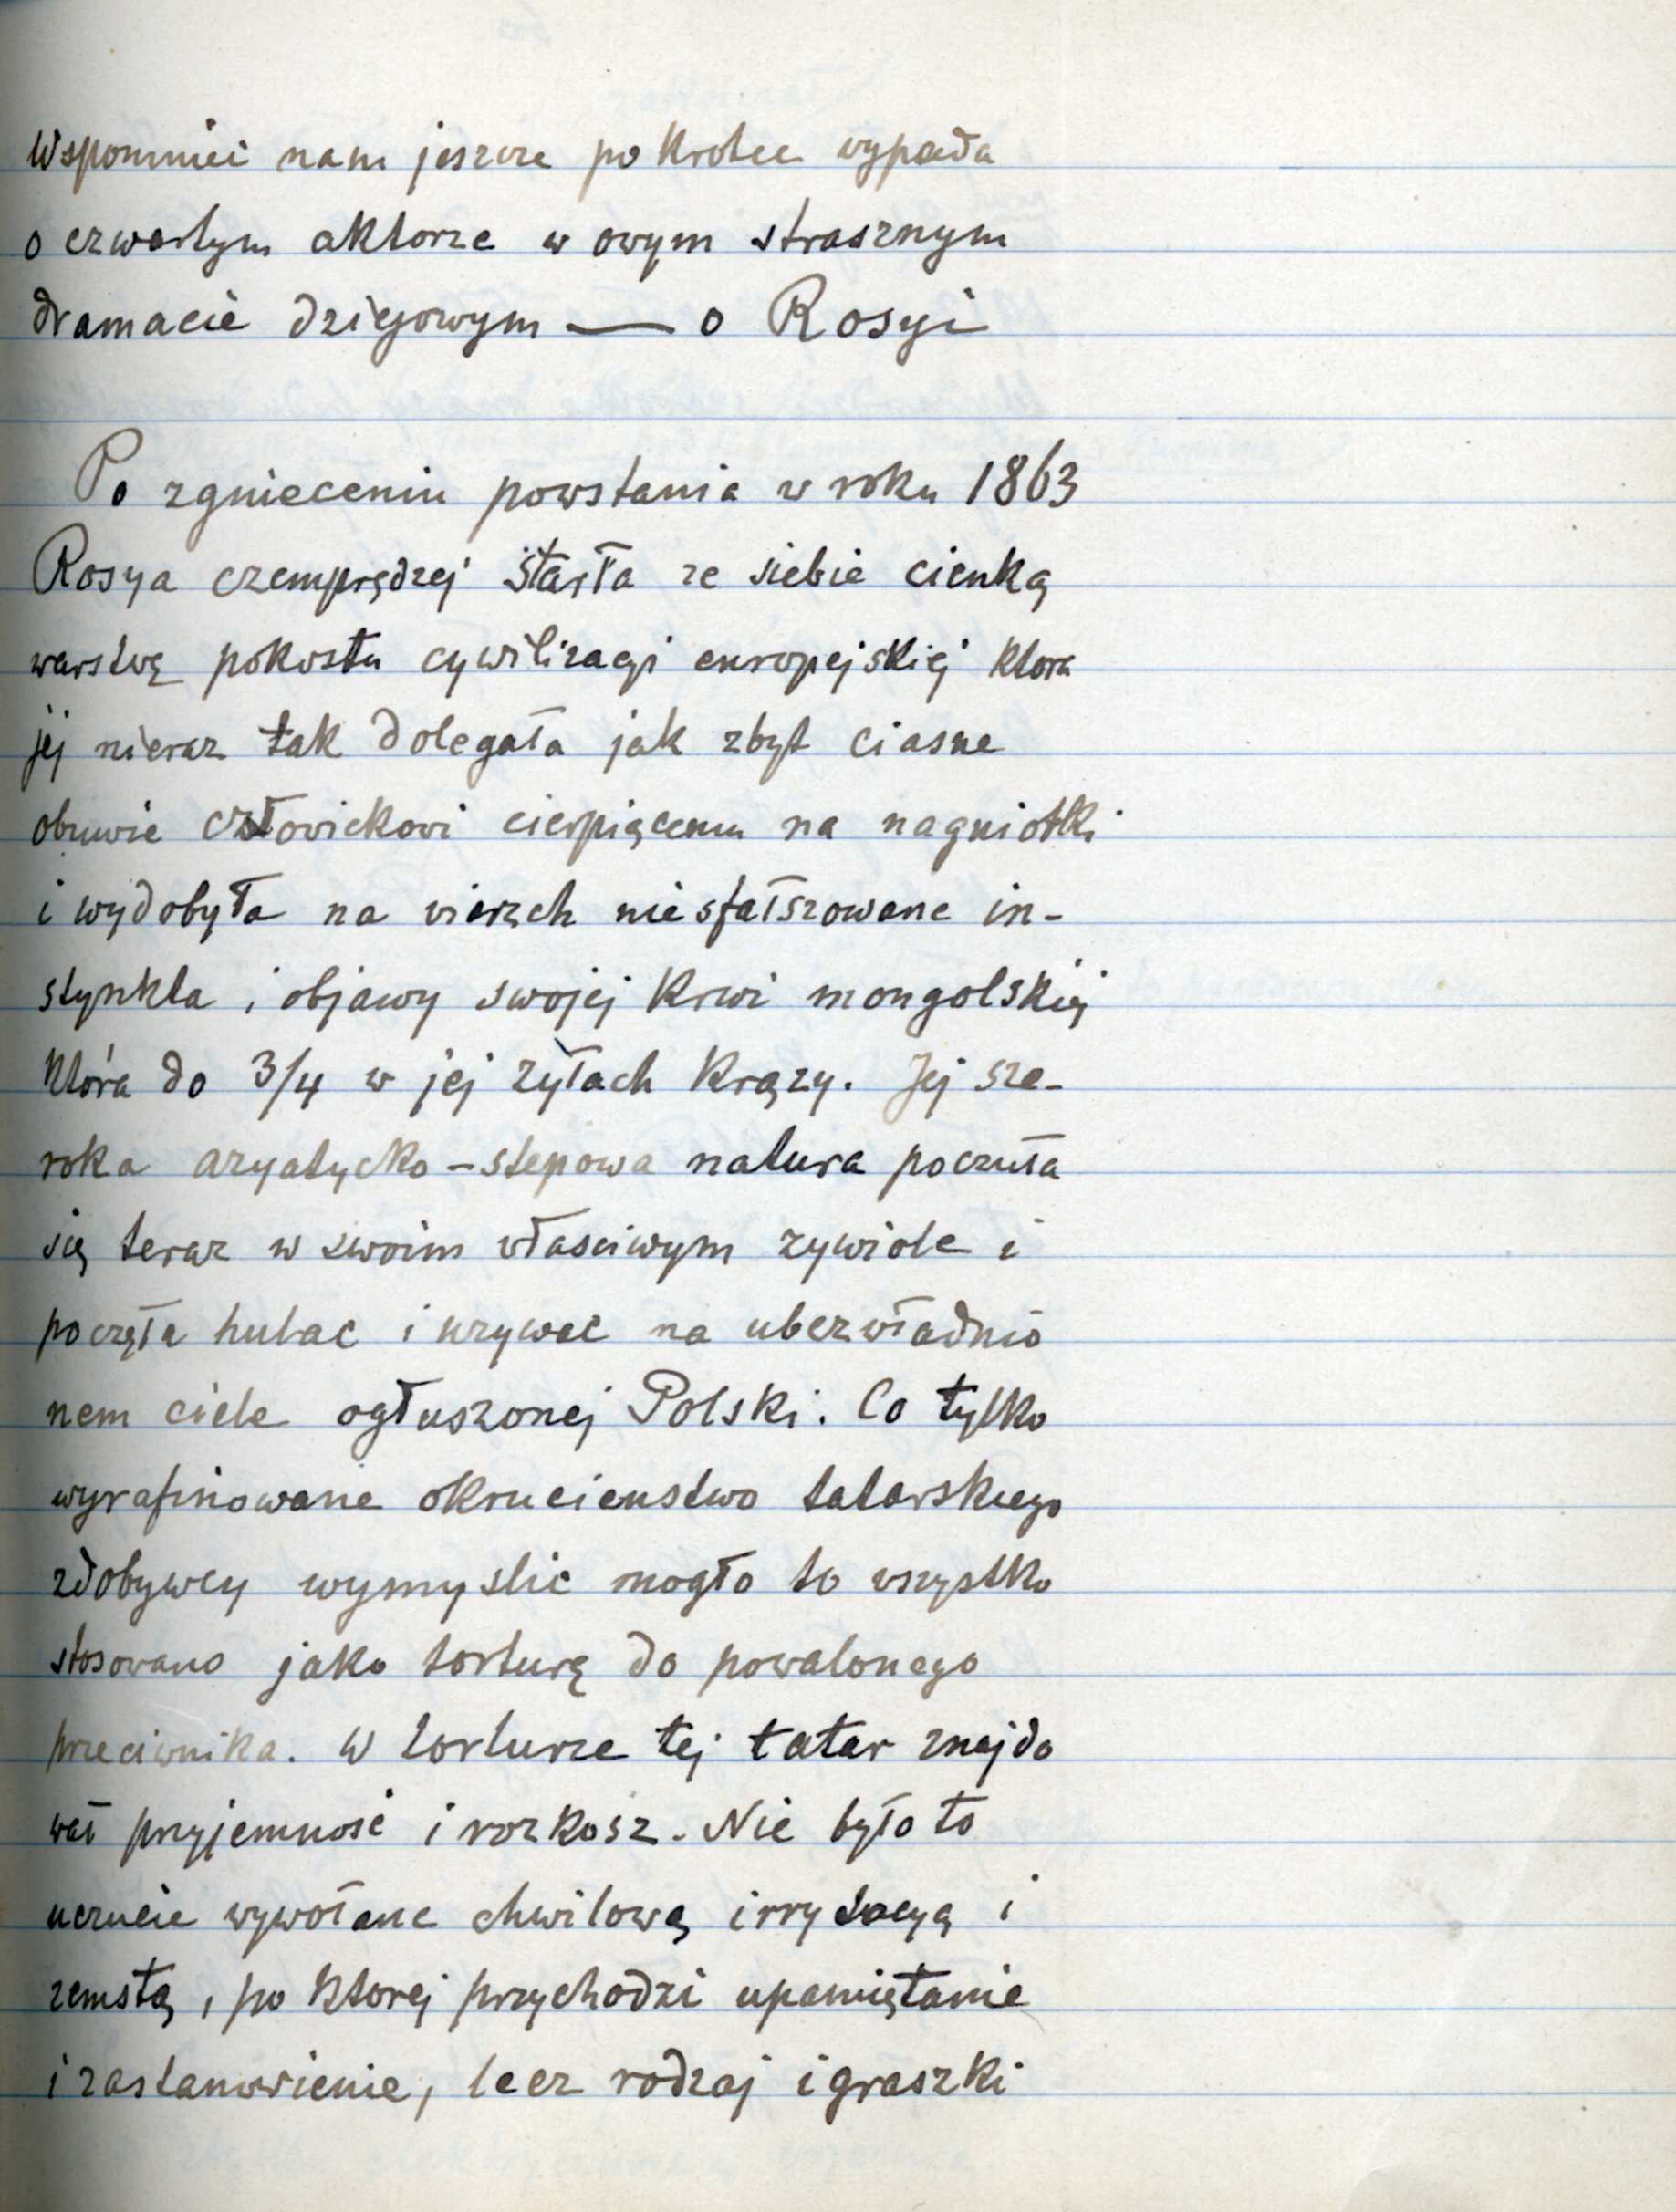 Wspomniei nam jeszcze po krotce wypada
o czwartym aktorze w owym strasznym
dramacie dziejowym — o Rosyi
Po zgnieceniu powstania w roku 1863
Rosya czemprędzej starła ze siebie cienką
warstwę pokostu cywilizacyi europejskiej ktora
jej nieraz tak dolegała jak zbyt ciasne
obuwie człowiekowi cierpiącemu na nagniotki
i wydobyła na wierzch niesfałszowane in-
stynkta i objawy swojej krwi mongolskiej
która do 3/4 w jej zyłach krązy. Jej sze-
roka azyatycko-stepowa natura poczuła
się teraz w swoim własciwym zywiole i
poczęła hulac i uzywac na ubezwładnio
nem ciele ogłuszonej Polski. Co tylko
wyrafinowane okrucienstwo tatarskiego
zdobywcy wymyslic mogło to wszystko
stosowano jako torturę do powalonego
przeciwnika. W torturze tej tatar znajdo
wał przyjemnosc i rozkosz. Nie było to
uczucie wywołane chwilową irrytacyą i
zemstą, po ktorej przychodzi upamiętanie
i zastanowienie, lecz rodzaj igraszki